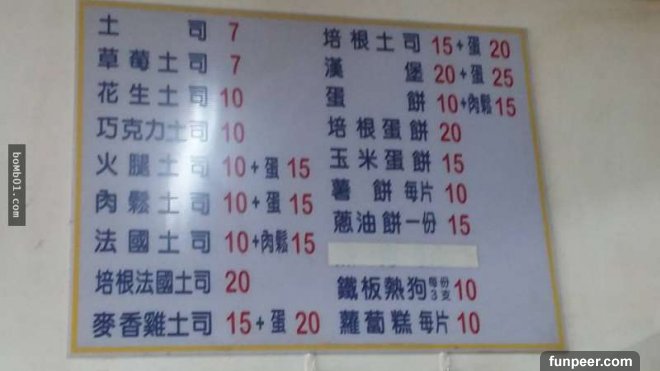 土司 7
草莓土司 7
花生土司 10
巧克力土司 10
火腿土司 10+蛋 15
肉鬆土司 10+蛋 15
法國土司 10+肉鬆 15
培根法國土司 20
麥香雞土司 15+蛋 20
培根土司 15+蛋 20
漢堡 20+蛋 25
蛋餅 10+肉鬆 15
培根蛋餅 20
玉米蛋餅 15
薯餅 每片 10
蔥油餅一份 15
鐵板熱狗 每份3支 10
蘿蔔糕 每片 10
boMb01.com
funpeer.com